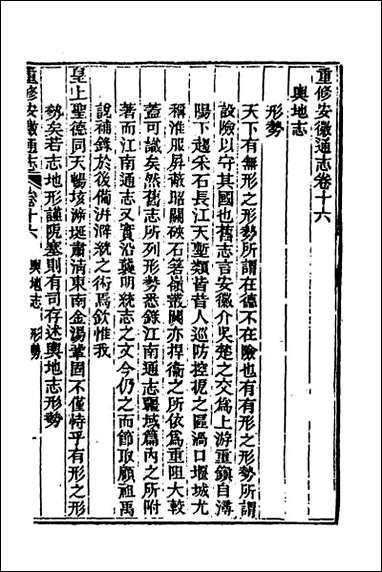 重修安徽通志卷十六
輿地志
形勢
天下有無形之形勢所謂在德不在險也有有形之形勢所謂
設險以守其國也舊志言安徽介吳楚之交爲上游重鎭自潯
陽下趨采石長江天塹類皆昔人巡防控扼之區渦口堰城尤
稱淮服屏蔽昭關硤石箬嶺叢關亦捍衞之所依爲重阻大較
蓋可識矣然舊志所列形勢悉錄江南通志疆域篇內之所附
著而江南通志又實沿襲明統志之文今仍之而節取顧祖禹
說補錄於後備洴澼絖之術焉欽惟我
皇上聖德同天暢垓泝埏肅淸東南金湯鞏固不僅恃乎有形之形
勢矣若志地形謹阨塞則有司存述輿地志形勢
重修安徽通志 卷十六 輿地志 形勢